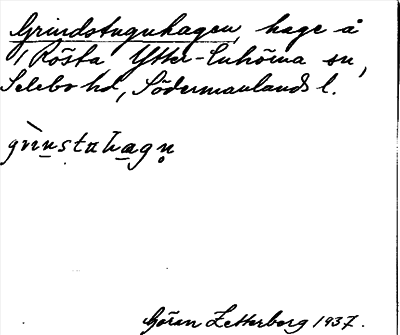 Grindstuguhagen, hage å
Rösta Ytter-Enhörna sn,
Selebo hd, Södermanlands l.
grìnstahagn̥
Göran Zetterberg 1937.